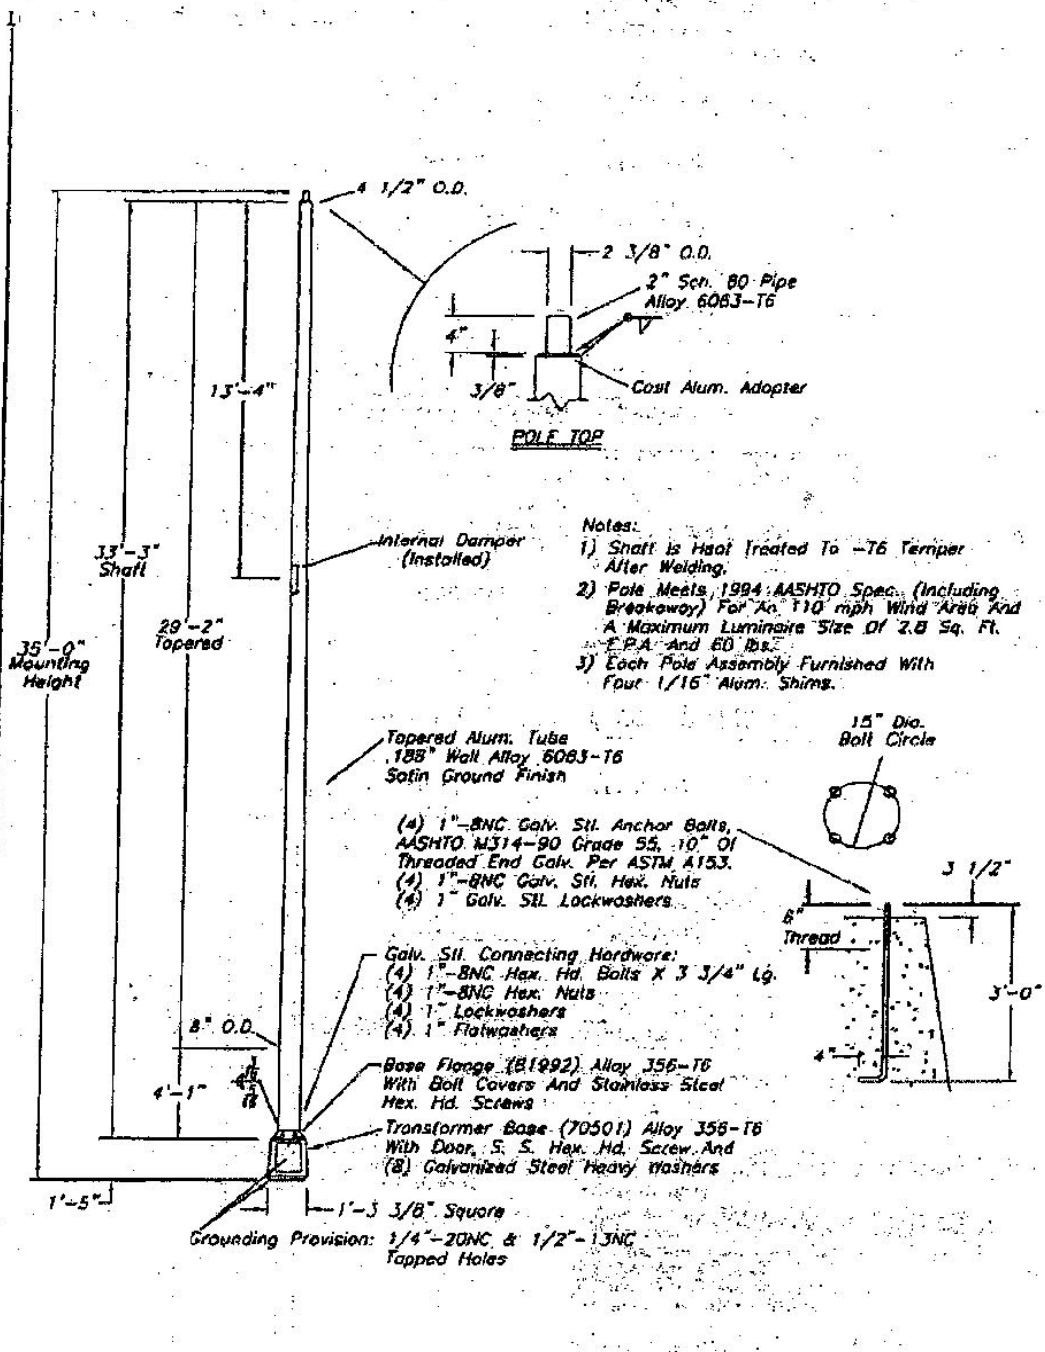 4 1/2" O.D.
2 3/8" O.D.
2" Sch. 80 Pipe
Alloy 6063-T6
4"
3/8"
Cast Alum. Adapter
POLE TOP
13'-4"
Internal Damper
(Installed)
33'-3"
Shaft
29'-2"
Tapered
35'-0"
Mounting
Height
Notes:
1) Shaft Is Heat Treated To -T6 Temper
After Welding.
2) Pole Meets 1994 AASHTO Spec. (Including
Breakaway) For An 110 mph Wind Area And
A Maximum Luminaire Size Of 2.8 Sq. Ft.
E.P.A. And 60 lbs.
3) Each Pole Assembly Furnished With
Four 1/16" Alum. Shims.
Tapered Alum. Tube
.188" Wall Alloy 6063-T6
Satin Ground Finish
15" Dia.
Bolt Circle
(4) 1"-8NC Galv. Stl. Anchor Bolts,
AASHTO M314-90 Grade 55, 10" Of
Threaded End Galv. Per ASTM A153.
(4) 1"-8NC Galv. Stl. Hex. Nuts
(4) 1" Galv. Stl. Lockwashers
3 1/2"
6"
Thread
3'-0"
4"
Galv. Stl. Connecting Hardware:
(4) 1"-8NC Hex. Hd. Bolts X 3 3/4" Lg.
(4) 1"-8NC Hex. Nuts
(4) 1" Lockwashers
(4) 1" Flatwashers
8" O.D.
4'-1"
Base Flange (B1992) Alloy 356-T6
With Bolt Covers And Stainless Steel
Hex. Hd. Screws
Transformer Base (70501) Alloy 356-T6
With Door, S. S. Hex. Hd. Screw And
(8) Galvanized Steel Heavy Washers
1'-5"
1'-3 3/8" Square
Grounding Provision: 1/4"-20NC & 1/2"-13NC
Tapped Holes